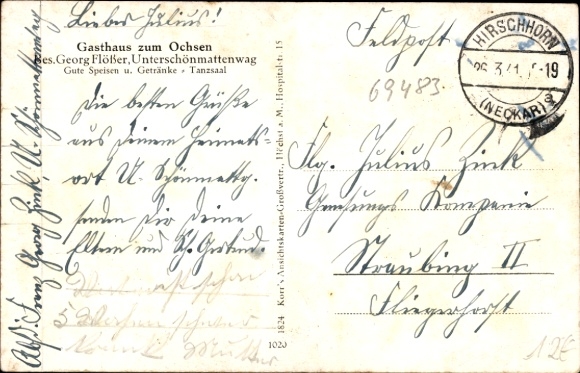 Liebes Julius!
Gasthaus zum Ochsen
Bes. Georg Flößer, Unterschönmattenwag
Gute Speisen u. Getränke - Tanzsaal
Die besten Grüße
aus deinem Heimats-
ort U. Schönmattg.
senden dir deine
Eltern und Schw. Gertrud.
5 Wochen
Mutter
Abs: Franz Georg Zink, U. Schönmattenwag
1824 Korr's Ansichtskarten-Großvertr., Höchst a. M., Hospital-tr. 15
1020
Feldpost
69483.
HIRSCHHORN
26.3.41.-19
(NECKAR)
Flg. Julius Zink
Genesungs Kompanie
Straubing II
Fliegerhorst
12€